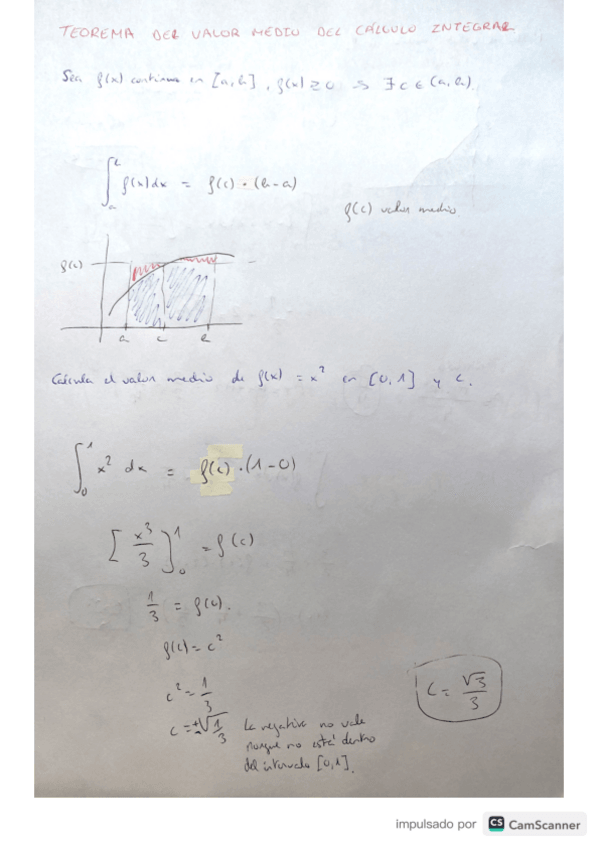 TEOREMA DEL VALOR MEDIO DEL CÁLCULO INTEGRAL
Sea f(x) continua en [a,b], f(x) ≥ 0 ⇒ ∃ c ∈ (a,b).
∫_a^b f(x)dx = f(c) · (b-a)
f(c) valor medio
f(c)
a c b
Calcula el valor medio de f(x) = x² en [0,1] y c.
∫_0^1 x² dx = f(c) · (1-0)
[x³/3]_0^1 = f(c)
1/3 = f(c).
f(c) = c²
c² = 1/3
c = ±√(1/3) La negativa no vale
porque no está dentro
del intervalo [0,1].
c = √3/3
impulsado por CS CamScanner